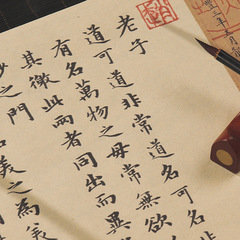 老子
道可道非常道名可名非
有名萬物之母常無欲
其徼此兩者同出而異
之門
美之為美